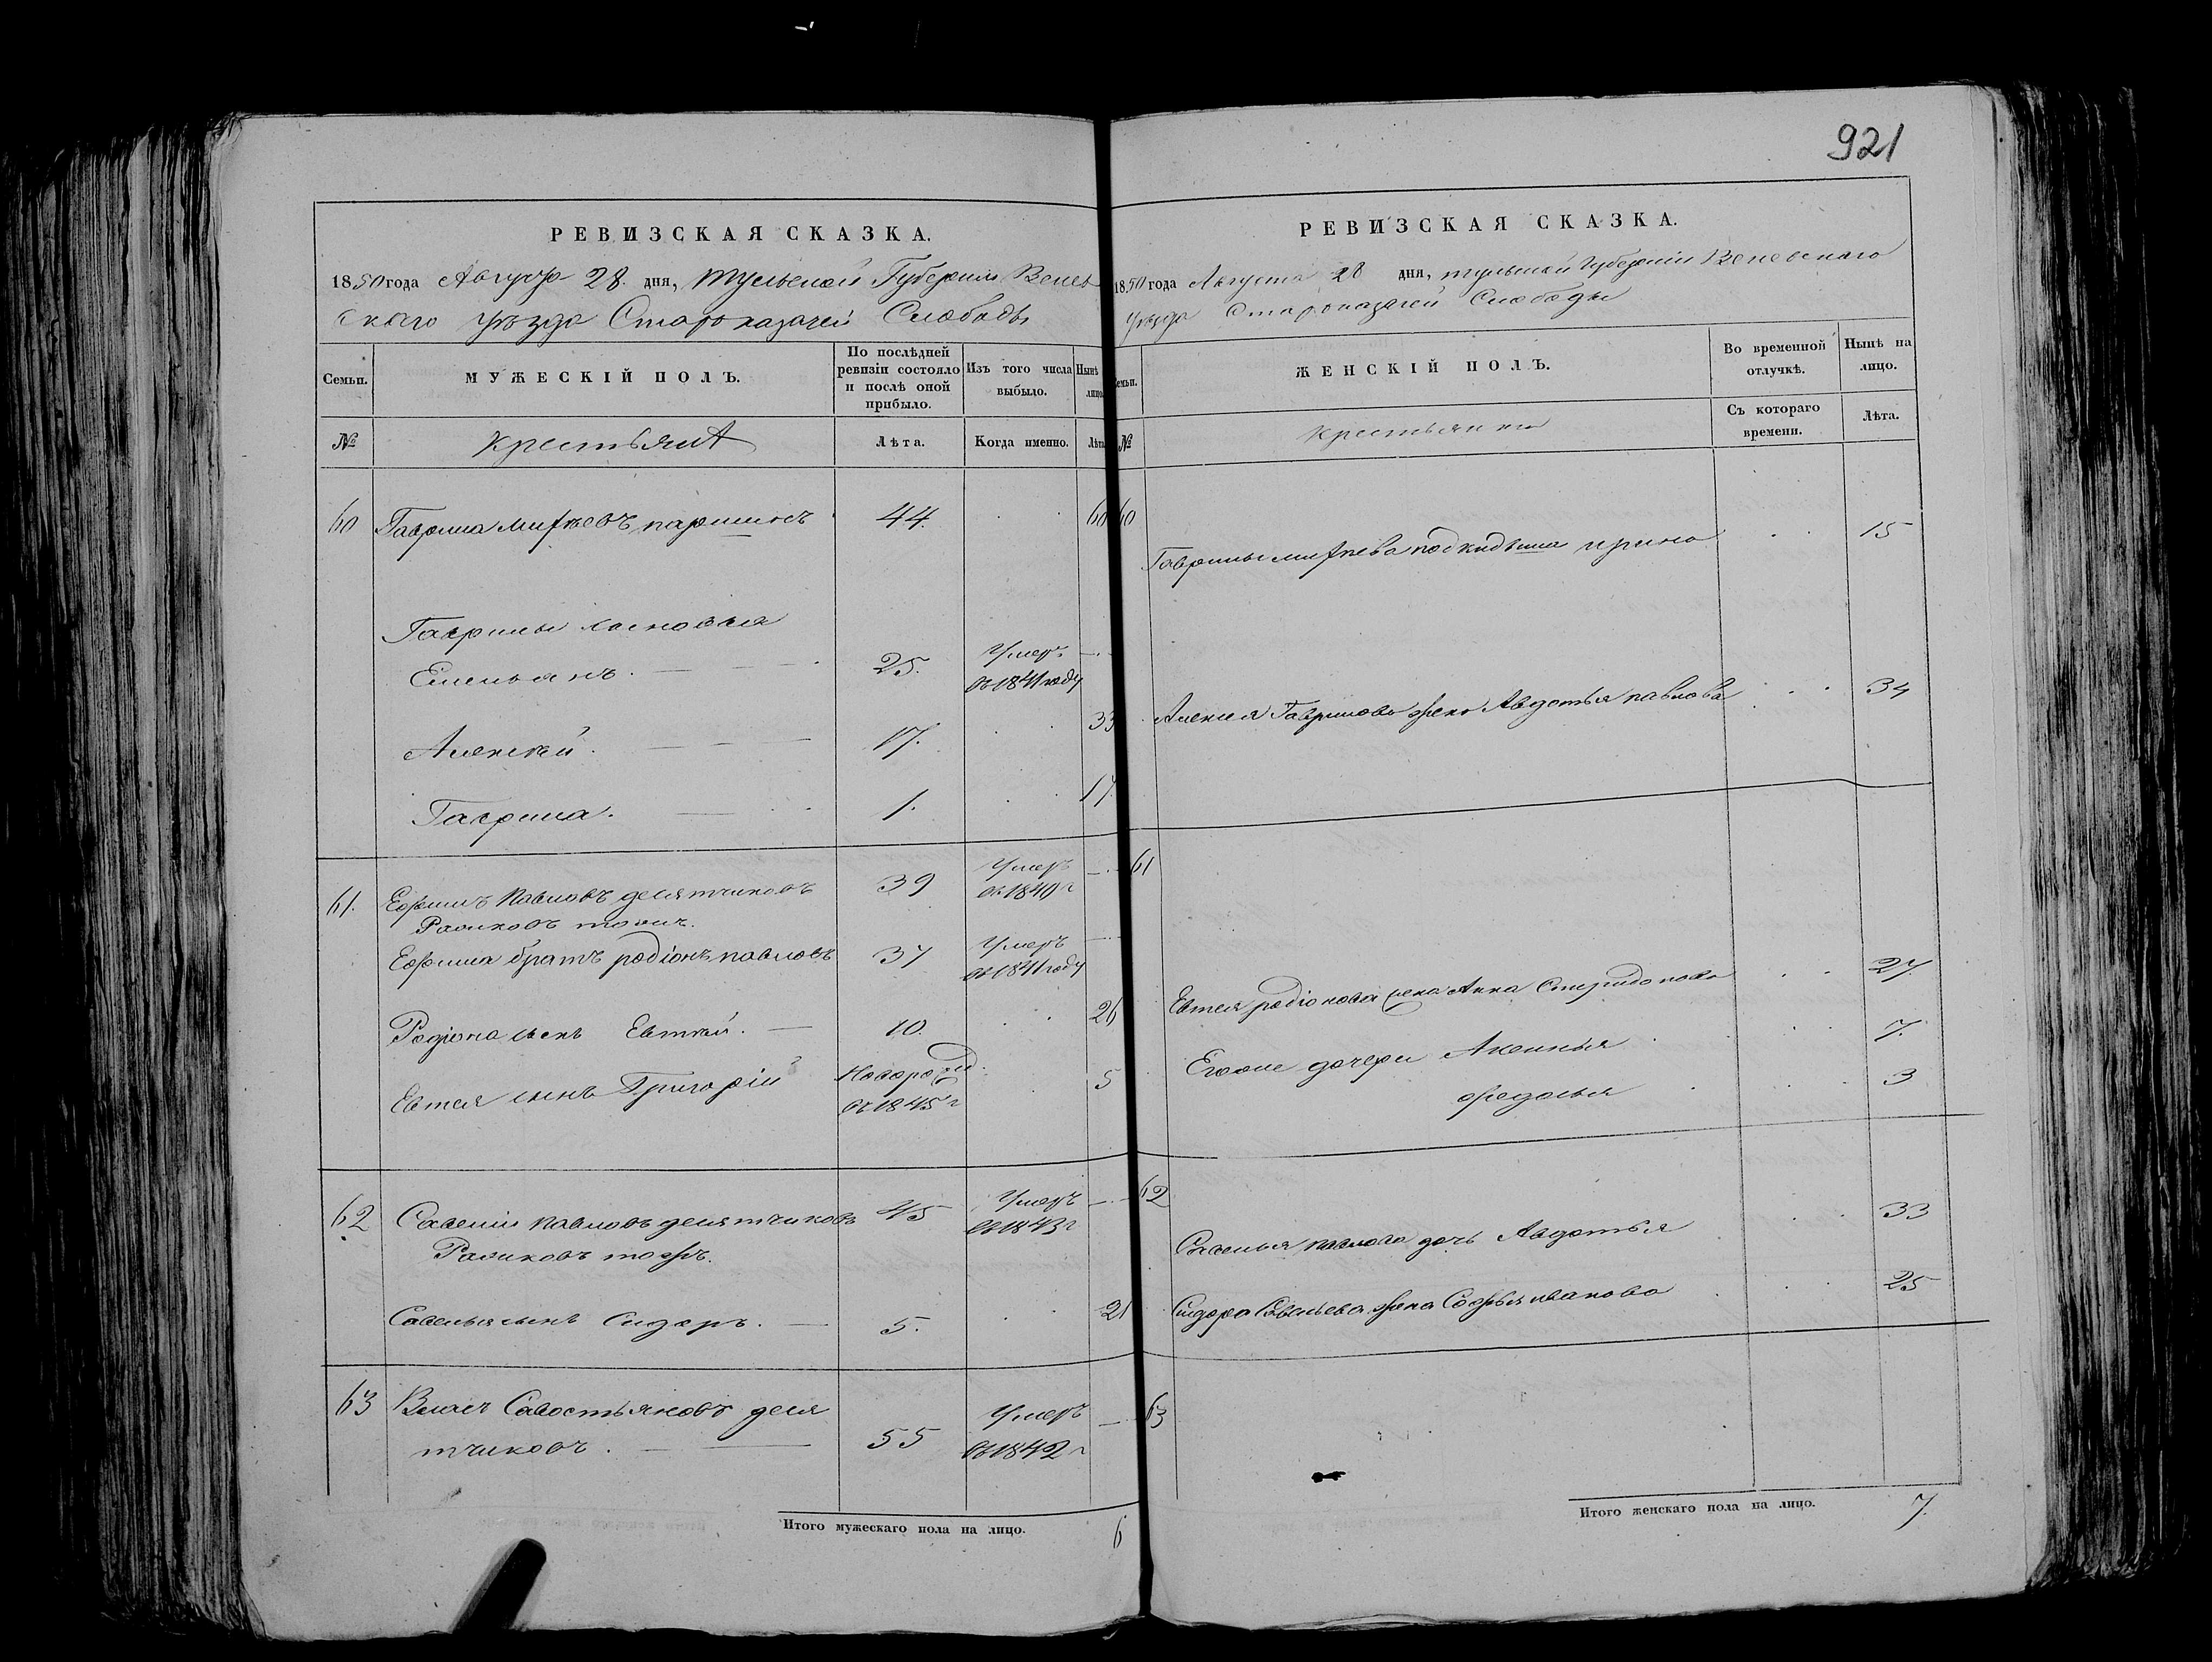 921
РЕВИЗСКАЯ СКАЗКА.
1850 года Августа 28. дня, Тульской Губернии Венев
скаго уѣзда Староказачей Слободы
Семьи.
МУЖЕСКІЙ ПОЛЪ.
По послѣдней
ревизіи состояло
и послѣ оной
прибыло.
Изъ того числа
выбыло.
Нынѣ
лицо
№
Крестьяня
Лѣта.
Когда именно.
Лѣта
60 Гаврила 44. 60
Гаврилы сыновья
Емельянъ. 25. Умеръ
въ 1841 году
Алексѣй. 17. 33
Гаврила. 1. 17.
61. Ефимъ Павловъ десятчиковъ 39 Умеръ
въ 1840 г
тожъ.
Ефима братъ родіонъ павловъ 37 Умеръ
въ 1841 году
Родіона сынъ Евтѣй. 10. 26
Евтея сынъ Григорій Новорожд.
въ 1845 г 5
62 Савелій павловъ десятчиковъ 45 Умеръ
въ 1843 г
тожъ.
Савелья сынъ Сидоръ. 5. 21
63 Власъ Савостьяновъ деся
тчиковъ. 55 Умеръ
въ 1842 г
Итого мужескаго пола на лицо. 6
РЕВИЗСКАЯ СКАЗКА.
1850 года Августа 28 дня, тульской Губерніи Веневскаго
уѣзда Староказачей Слободы
Семьи.
ЖЕНСКІЙ ПОЛЪ.
Во временной
отлучкѣ.
Нынѣ на
лицо.
№
Крестьянки
Съ котораго
времени.
Лѣта.
60
Гаврилы подкидыша ирина 15
Алексея Гаврилова жена Авдотья павлова 34
61
Евтея родіонова жена Анна Спиридонова 27.
Егоже дочери Аксинья 7.
федосья 3
62
Савелья павлова дочь Авдотья 33
Сидора Савельева жена Софья иванова 25
63
Итого женскаго пола на лицо. 7.